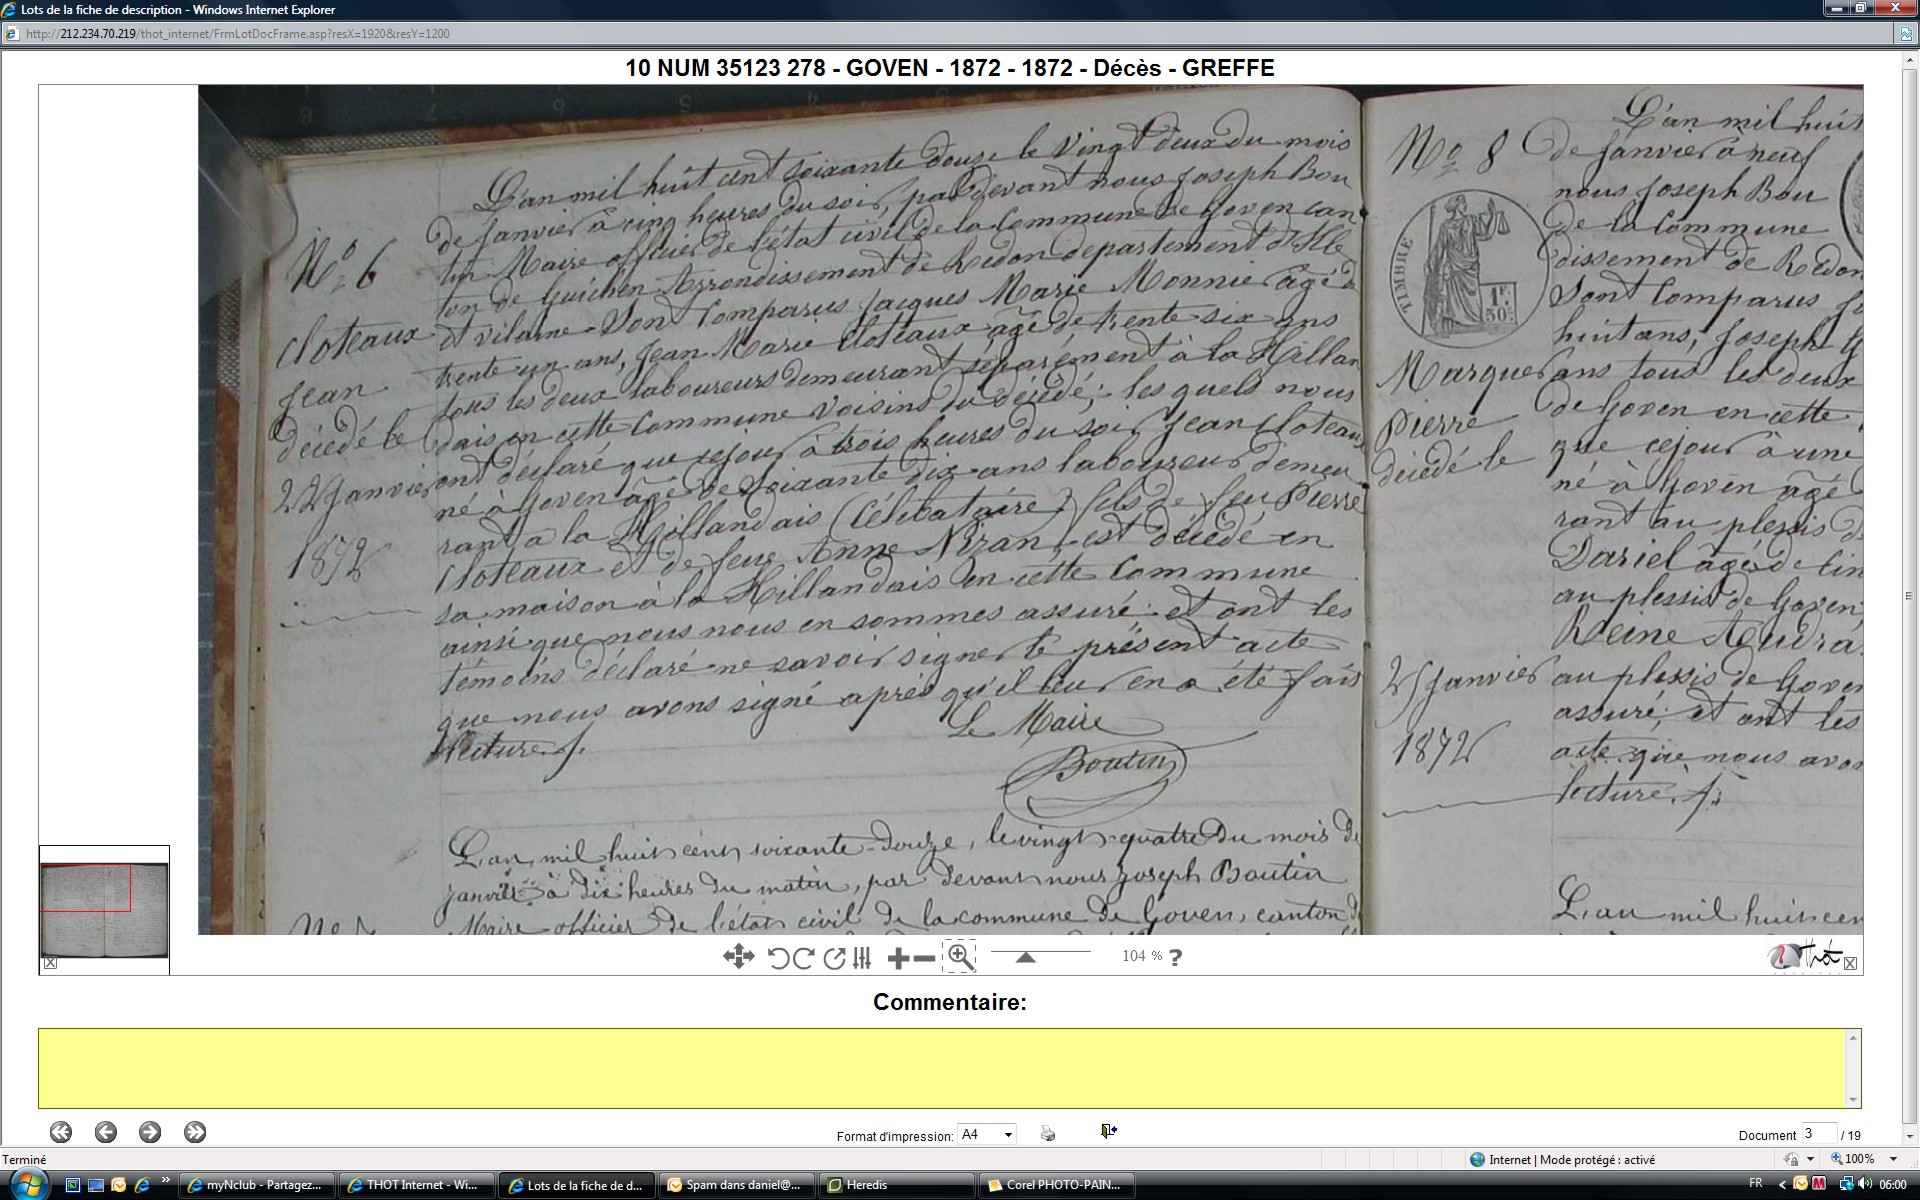 Lots de la fiche de description - Windows Internet Explorer
http://212.234.70.219/thot_internet/FrmLotDocFrame.asp?resX=1920&resY=1200
10 NUM 35123 278 - GOVEN - 1872 - 1872 - Décès - GREFFE
8 7 6 5 4 3
L'an mil huit cent soixante douze le vingt deux du mois
de Janvier à cinq heures du soir, par devant nous Joseph Bou
tin Maire officier de l'état civil de la Commune de Goven can
ton de Guichen Arrondissement de Redon departement d'Ille
et vilaine. Sont Comparus Jacques Marie Monnier âgé de
trente un ans, Jean Marie Cloteaux âgé de trente six ans
tous les deux laboureurs demeurant separément à la Hillan
dais en cette Commune voisins du décédé; les quels nous
ont déclaré que cejour à trois heures du soir Jean Cloteaux
né à Goven âgé de soixante dix ans laboureur demeu
rant à la Hillandais (Célibataire) fils de feu Pierre
Cloteaux et de feue Anne Nizan, est décédé en
sa maison à la Hillandais en cette Commune
ainsi que nous nous en sommes assuré; et ont les
témoins déclaré ne savoir signer le présent acte
que nous avons signé après qu'il leur en a été fais
lecture. /.
Le Maire
Boutin
No 6
Cloteaux
Jean
décédé le
22 Janvier
1872
L'an mil huit cent soixante-douze, le vingt-quatre du mois de
janvier à dix heures du matin, par devant nous Joseph Boutin
Maire officier de l'état civil de la commune de Goven, canton d
No 8
TIMBRE
1F.
50c
Marquer
Pierre
décédé le
25 Janvier
1872
L'an mil huit
de Janvier à neuf
nous Joseph Bou
de la Commune
dissement de Redon
Sont Comparus
huit ans, Joseph
ans tous les deux
de Goven en cette
que cejour à une
né à Goven âgé
rant au plessis d
Dariel âgé de cin
au plessis de Goven
Reine
au plessis de Goven
assuré; et ont les
acte que nous avon
lecture. /.
L'an mil huit cen
104 % ?
Thot
Commentaire:
Format d'impression: A4
Document 3 / 19
Terminé
Internet | Mode protégé : activé
100%
myNclub - Partagez...
THOT Internet - Wi...
Lots de la fiche de d...
Spam dans daniel@...
Heredis
Corel PHOTO-PAIN...
FR
06:00